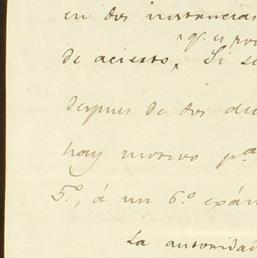 en dos instancias
q.e es
de acierto, Si
despues de dos
hay motivo p.a
5.o, á un 6.o exám
La autoridad